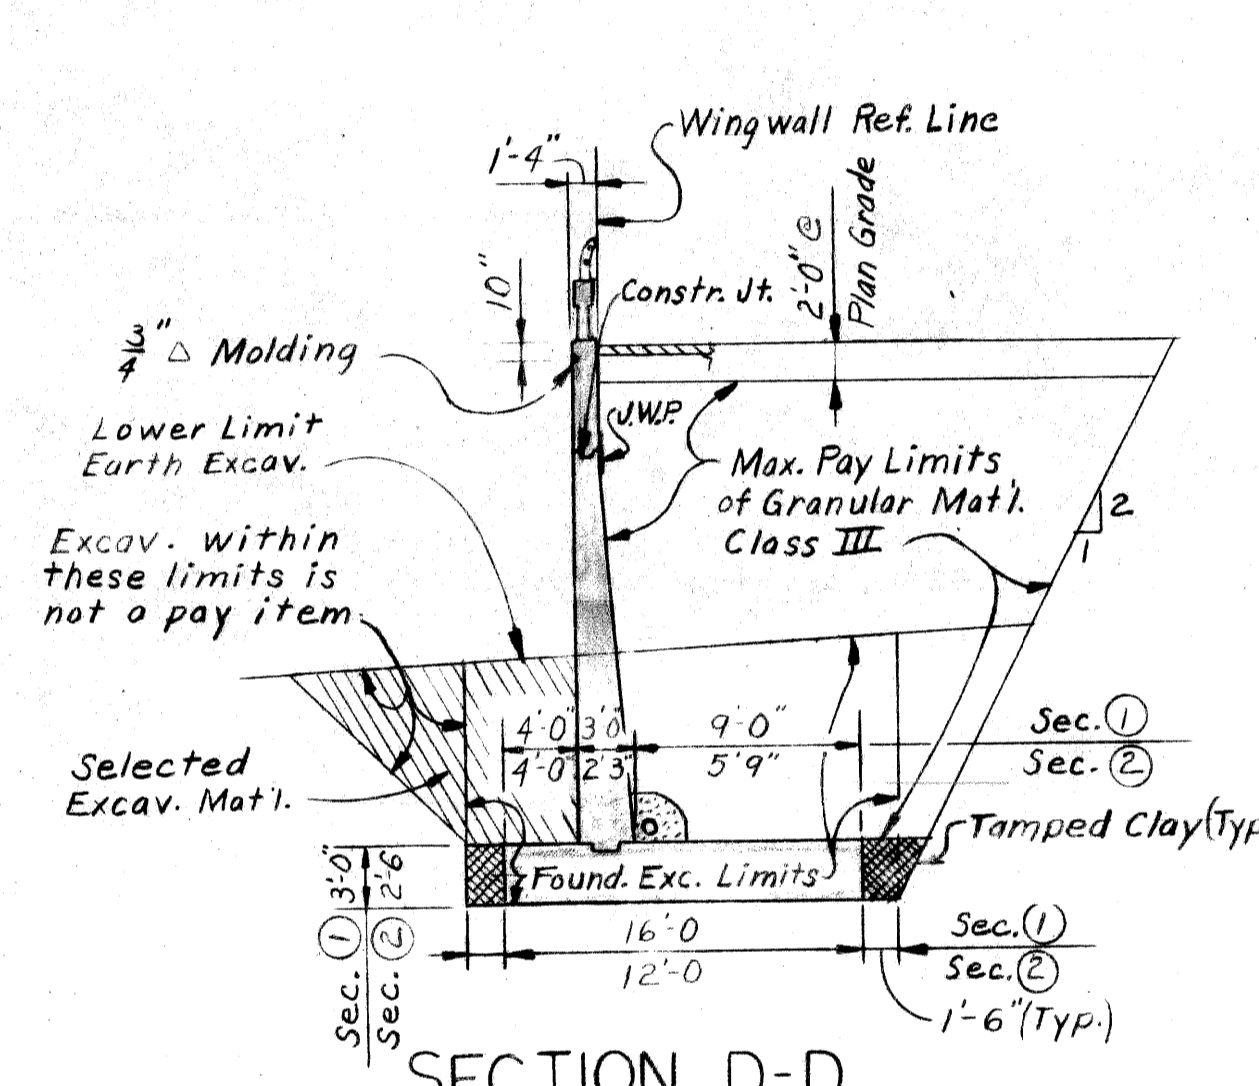 Wingwall Ref. Line
1'-4"
2'-0" @
Plan Grade
10"
Constr. Jt.
3/4" △ Molding
J.W.P.
Lower Limit
Earth Excav.
Max. Pay Limits
of Granular Mat'l.
Class III
2
1
Excav. within
these limits is
not a pay item
4'-0" 3'0" 9'-0" Sec. 1
4'-0 2'3" 5'9" Sec. 2
Selected
Excav. Mat'l.
Tamped Clay (Typ
3'-0"
2'-6
Found. Exc. Limits
Sec. 1
Sec. 2
16'-0 Sec. 1
12'-0 Sec. 2
1'-6" (Typ.)
SECTION D-D